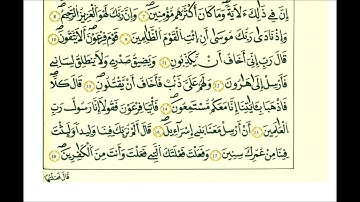 إِنَّ فِي ذَٰلِكَ لَآيَةً وَمَا كَانَ أَكْثَرُهُم مُّؤْمِنِينَ وَإِنَّ رَبَّكَ لَهُوَ الْعَزِيزُ الرَّحِيمُ
وَإِذْ نَادَىٰ رَبُّكَ مُوسَىٰ أَنِ ائْتِ الْقَوْمَ الظَّٰلِمِينَ قَوْمَ فِرْعَوْنَ أَلَا يَتَّقُونَ
قَالَ رَبِّ إِنِّي أَخَافُ أَن يُكَذِّبُونِ وَيَضِيقُ صَدْرِي وَلَا يَنطَلِقُ لِسَانِي
فَأَرْسِلْ إِلَىٰ هَٰرُونَ وَلَهُمْ عَلَيَّ ذَنبٌ فَأَخَافُ أَن يَقْتُلُونِ قَالَ كَلَّا
فَاذْهَبَا بِآيَٰتِنَا إِنَّا مَعَكُم مُّسْتَمِعُونَ فَأْتِيَا فِرْعَوْنَ فَقُولَا إِنَّا رَسُولُ رَبِّ
الْعَٰلَمِينَ أَنْ أَرْسِلْ مَعَنَا بَنِي إِسْرَآءِيلَ قَالَ أَلَمْ نُرَبِّكَ فِينَا وَلِيدًا وَلَبِثْتَ
فِينَا مِنْ عُمُرِكَ سِنِينَ وَفَعَلْتَ فَعْلَتَكَ الَّتِي فَعَلْتَ وَأَنتَ مِنَ الْكَٰفِرِينَ
قَالَ فَعَلْتُهَا